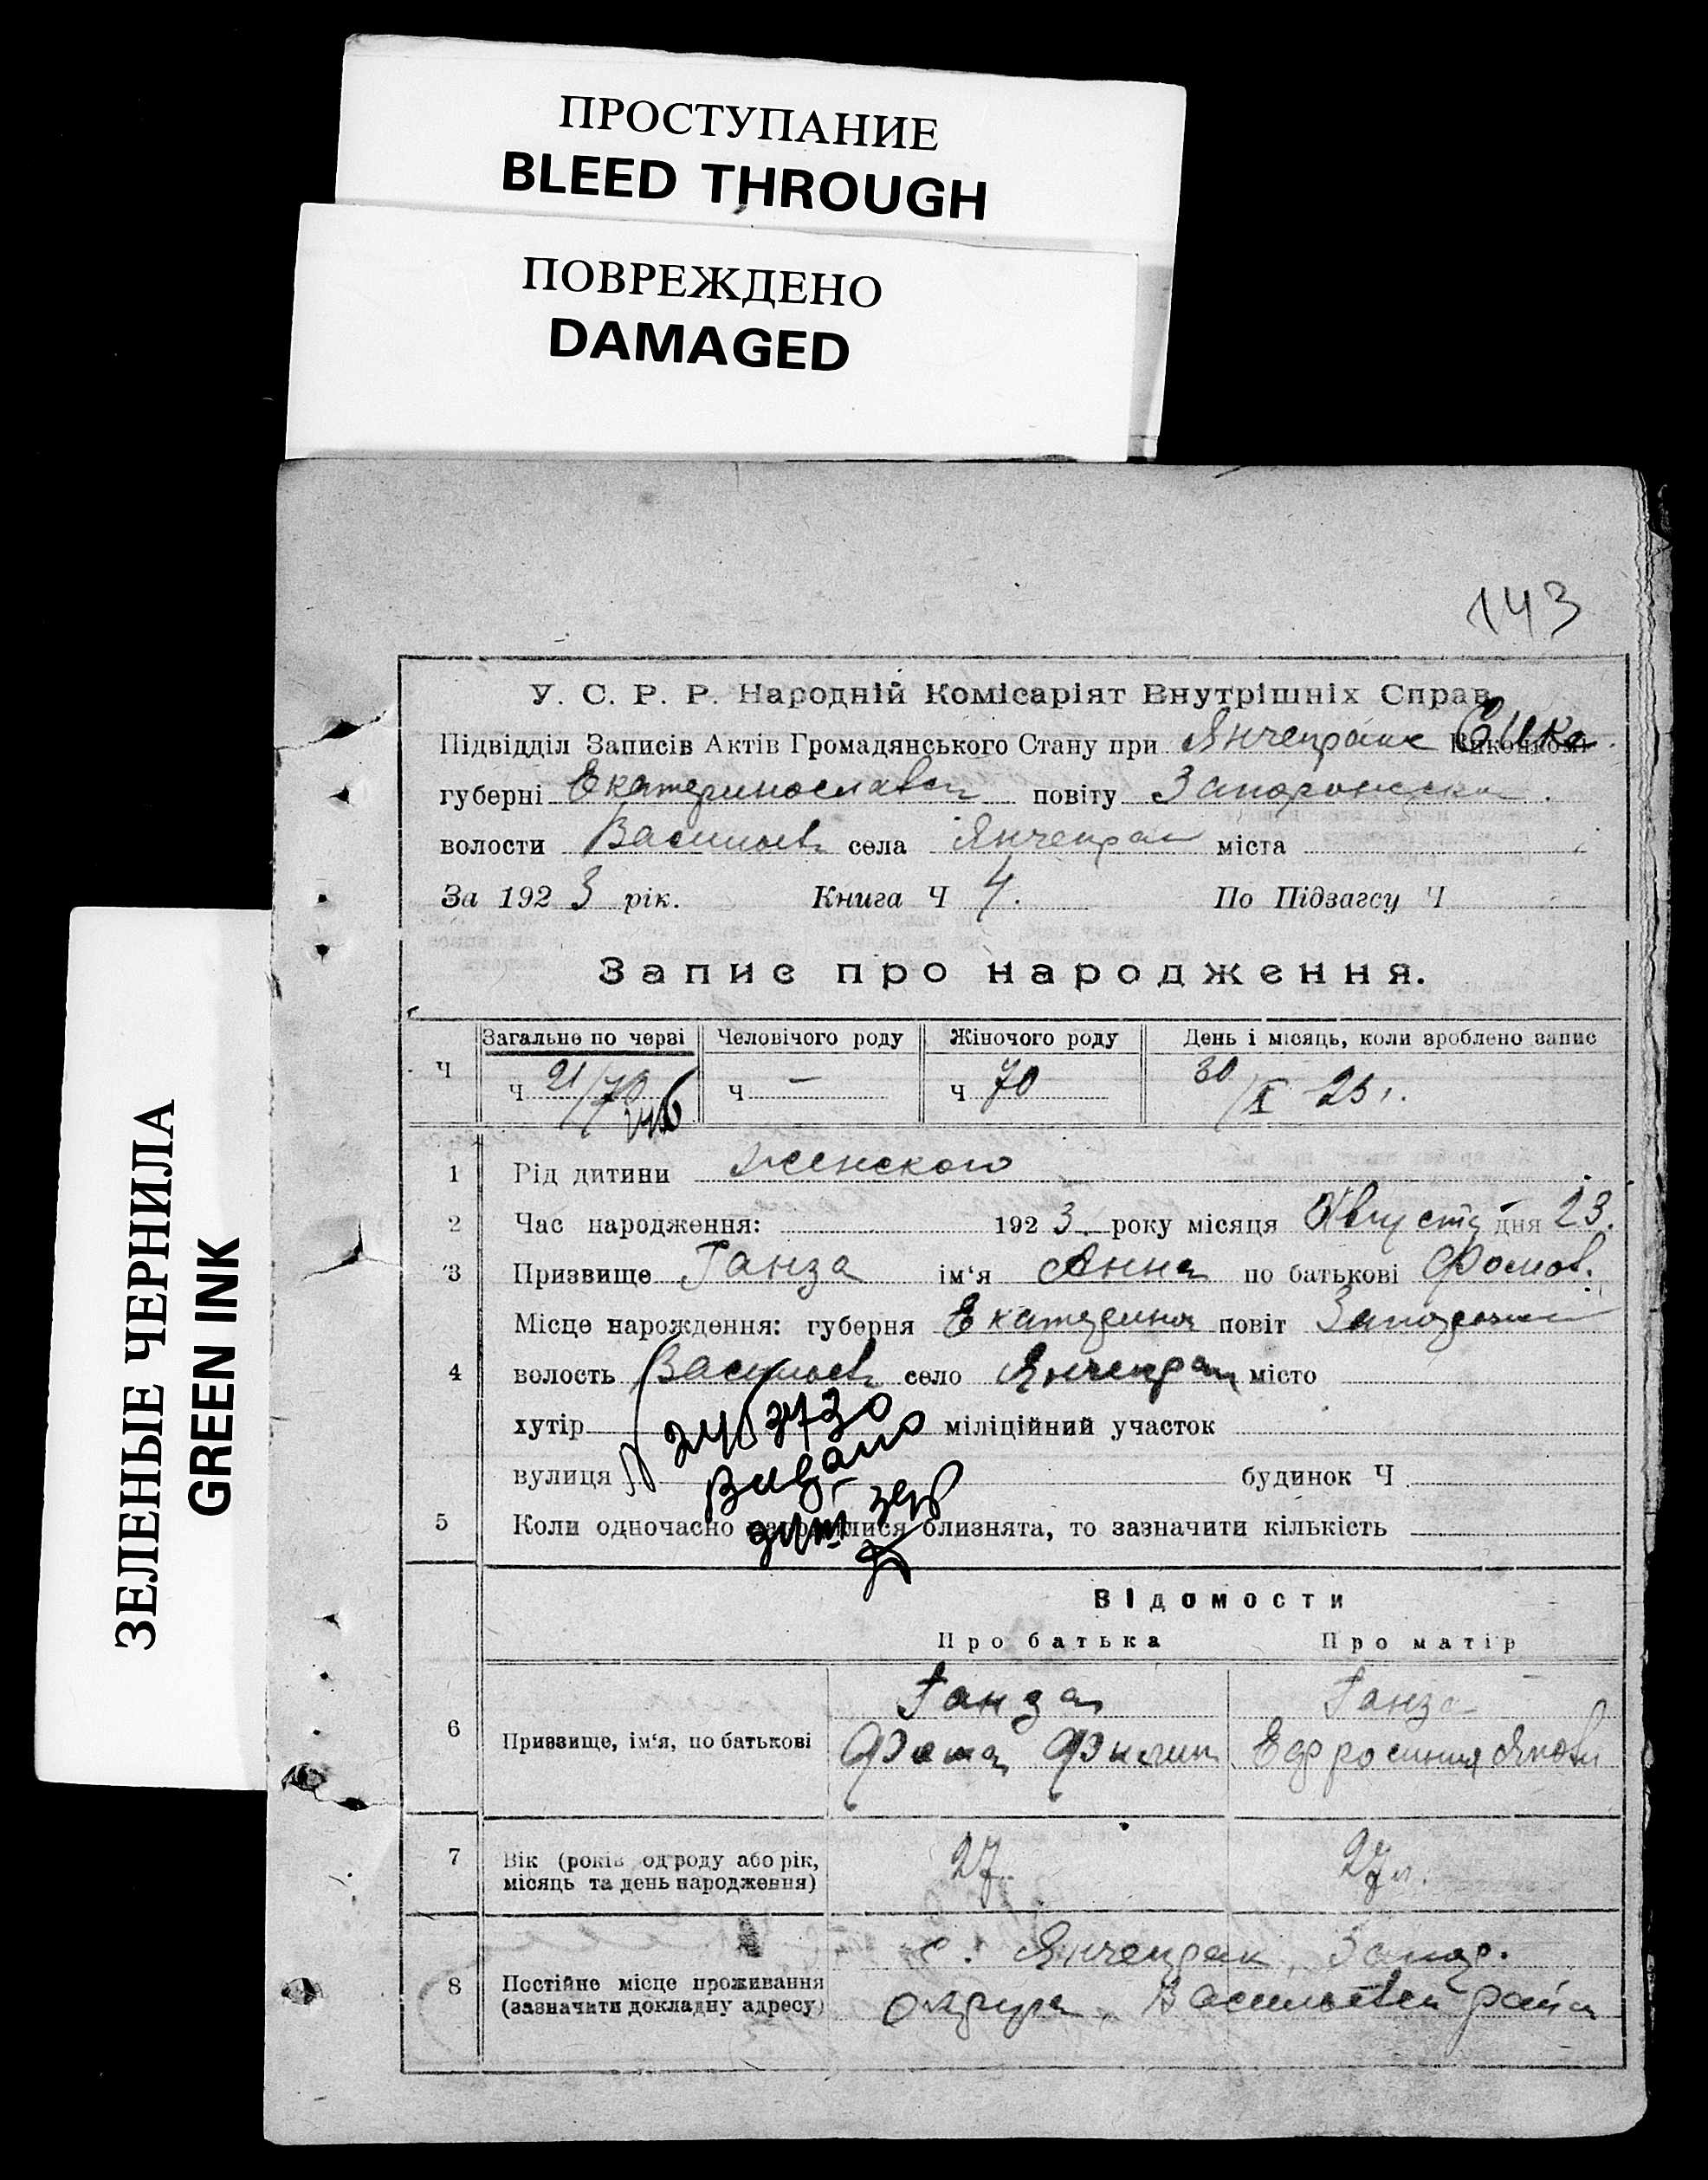 ПРОСТУПАНИЕ
BLEED THROUGH
ПОВРЕЖДЕНО
DAMAGED
ЗЕЛЕНЫЕ ЧЕРНИЛА
GREEN INK
143
У. С. Р. Р. Народній Комісаріят Внутрішніх Справ
Підвідділ Записів Актів Громадянського Стану при Янчекрак
губерні Екатеринославск повіту Запорожск
волости Васильев села Янчекрак міста
За 1923 рік. Книга Ч 4. По Підзагсу Ч
Запис про народження.
Загальне по черзі Человічого роду Жіночого роду День і місяць, коли зроблено запис
Ч Ч 21/70 Ч — Ч 70 30/X 23.
1 Рід дитини женского
2 Час народження: 1923 року місяця Август дня 23.
3 Призвище Ганза ім'я Анна по батькові Фомов.
Місце нарождення: губерня Екатерин повіт Запорож
4 волость Васильев село Янчекрак місто
хутір міліційний участок
вулиця будинок Ч
5 Коли одночасно народилися близнята, то зазначити кількість
Відомости
Про батька Про матір
Ганза Ганза
6 Призвище, ім'я, по батькові Фома Филип Ефросиния Яковл
7 Вік (років од роду або рік, місяць та день народження) 27. 27 л.
с. Янчекрак, Запор.
8 Постійне місце проживання (зазначити докладну адресу) округа, Васильевск район